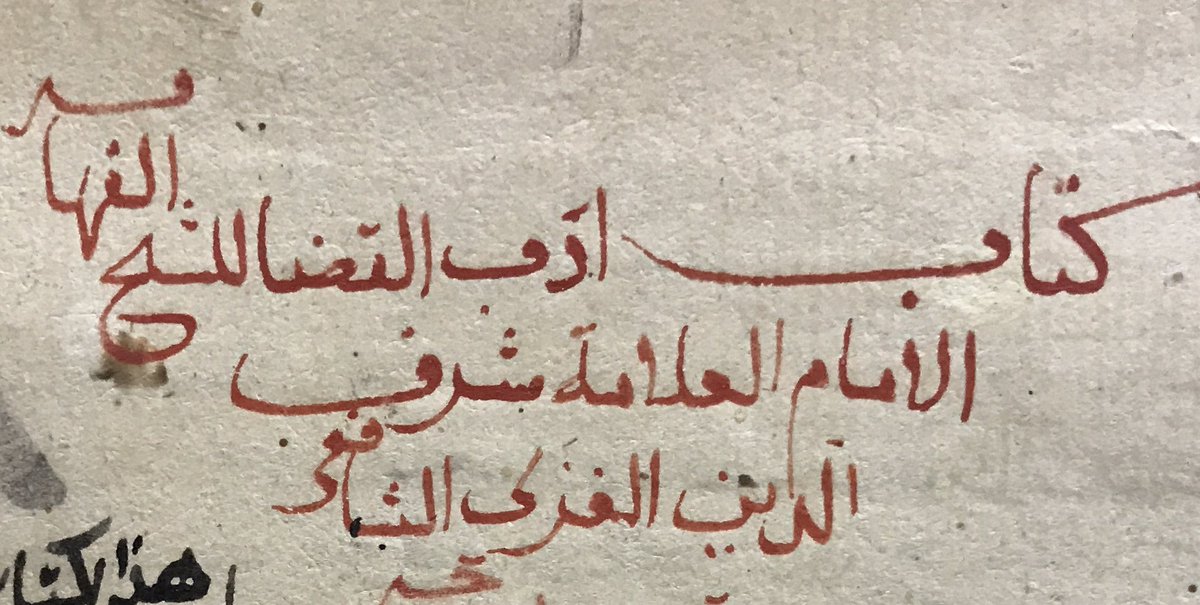 كتاب ادب القضا للشيخ الفهامه
الامام العلامة شرف
الدين الغزى الشافعى
هذا الكتاب